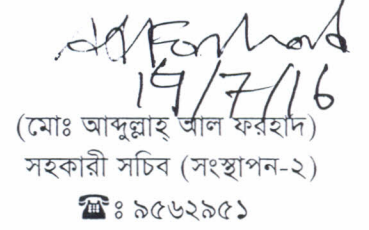 19/7/16
(মোঃ আব্দুল্লাহ্ আল ফরহাদ)
সহকারী সচিব (সংস্থাপন-২)
☎ঃ ৯৫৬২৯৫১